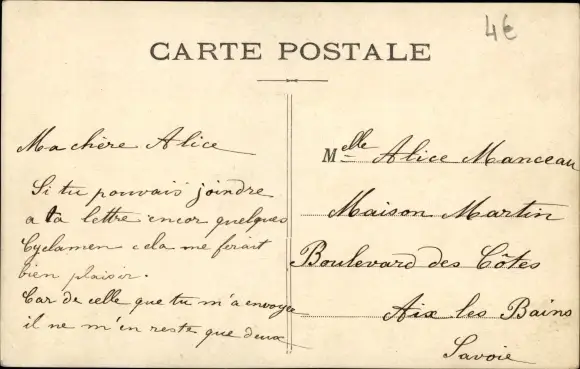 4€
CARTE POSTALE
Ma chère Alice
Si tu pouvais joindre
a ta lettre encor quelques
Cyclamen cela me ferait
bien plaisir.
Car de celle que tu m'a envoyée
il ne m'en reste que deux
Melle Alice Manceau
Maison Martin
Boulevard des Côtes
Aix les Bains
Savoie